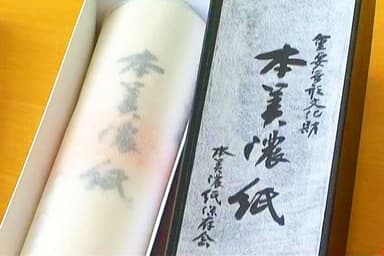 本美濃紙
重要無形文化財
本美濃紙
本美濃紙保存会